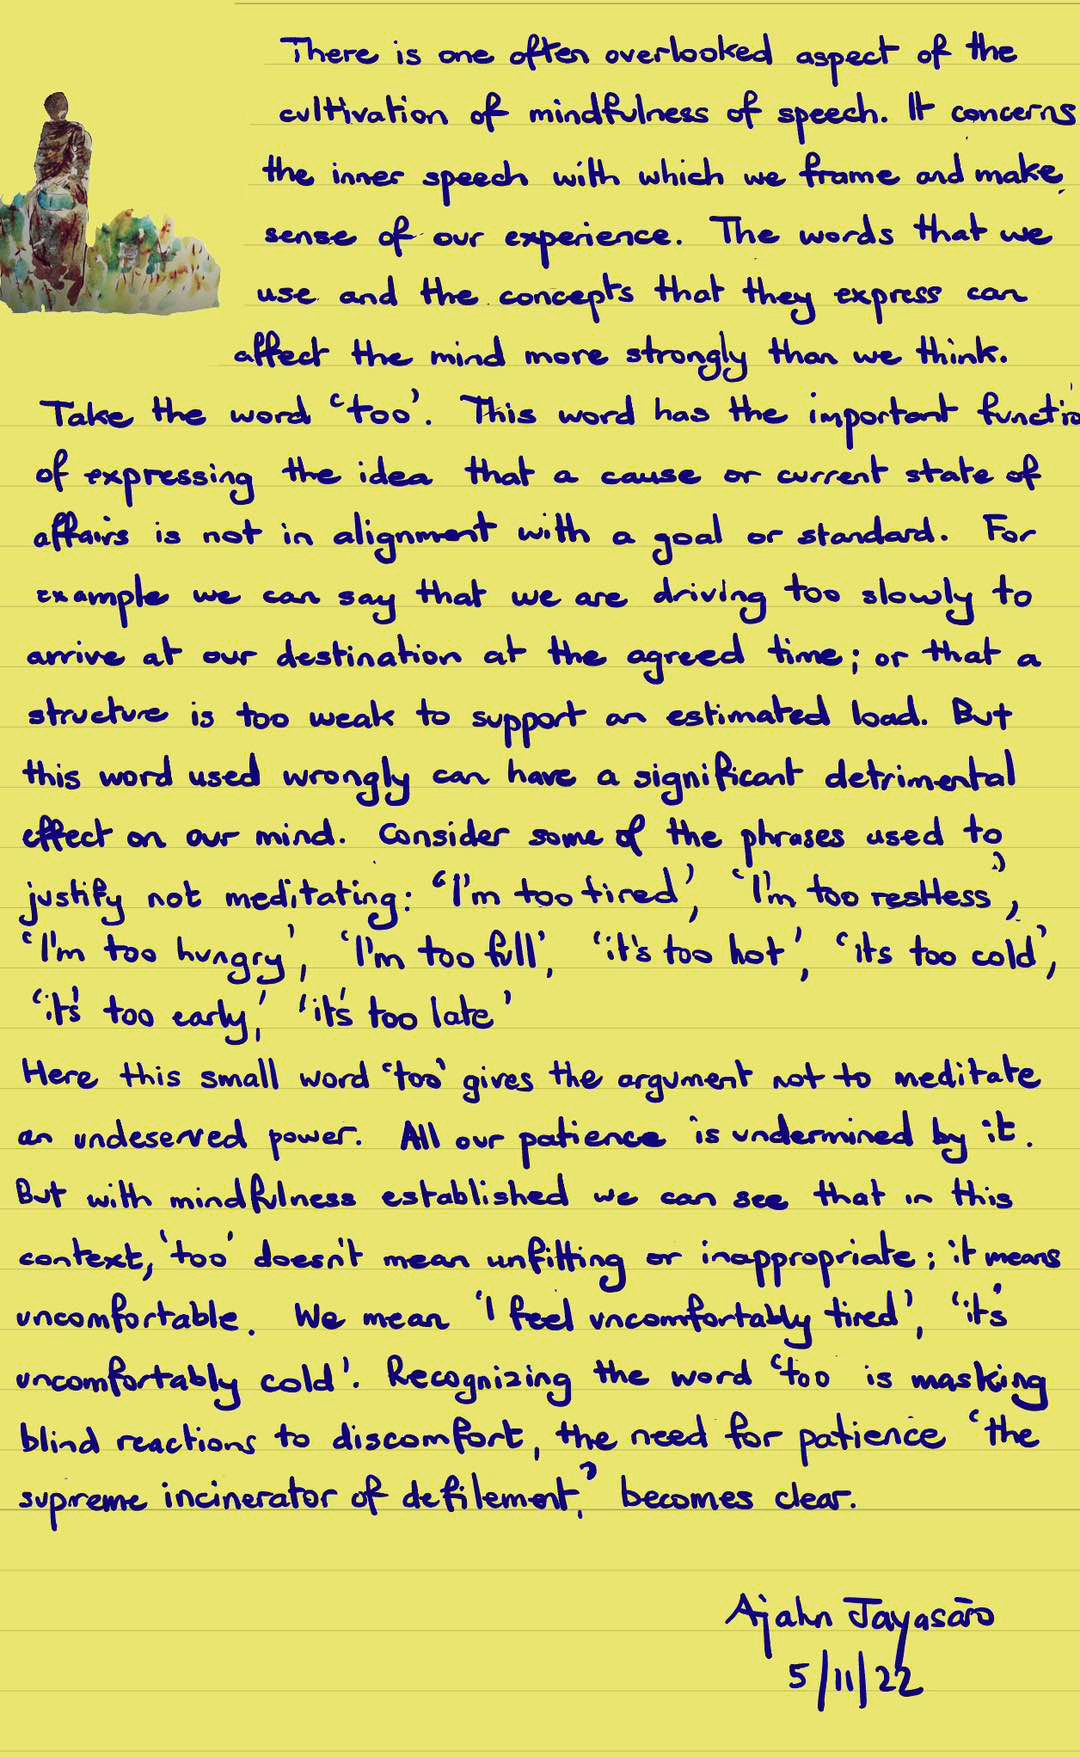 There is one often overlooked aspect of the
cultivation of mindfulness of speech. It concerns
the inner speech with which we frame and make
sense of our experience. The words that we
use and the concepts that they express can
affect the mind more strongly than we think.
Take the word 'too'. This word has the important functio
of expressing the idea that a cause or current state of
affairs is not in alignment with a goal or standard. For
example we can say that we are driving too slowly to
arrive at our destination at the agreed time; or that a
structure is too weak to support an estimated load. But
this word used wrongly can have a significant detrimental
effect on our mind. Consider some of the phrases used to
justify not meditating: "I'm too tired', 'I'm too restless',
'I'm too hungry', 'I'm too full', 'it's too hot', 'its too cold',
'it's too early,' 'it's too late'
Here this small word 'too' gives the argument not to meditate
an undeserved power. All our patience is undermined by it.
But with mindfulness established we can see that in this
context, 'too' doesn't mean unfitting or inappropriate; it means
uncomfortable. We mean 'I feel uncomfortably tired', 'it's
uncomfortably cold'. Recognizing the word 'too is masking
blind reactions to discomfort, the need for patience 'the
supreme incinerator of defilement,' becomes clear.
Ajahn Jayasāro
5/11/22